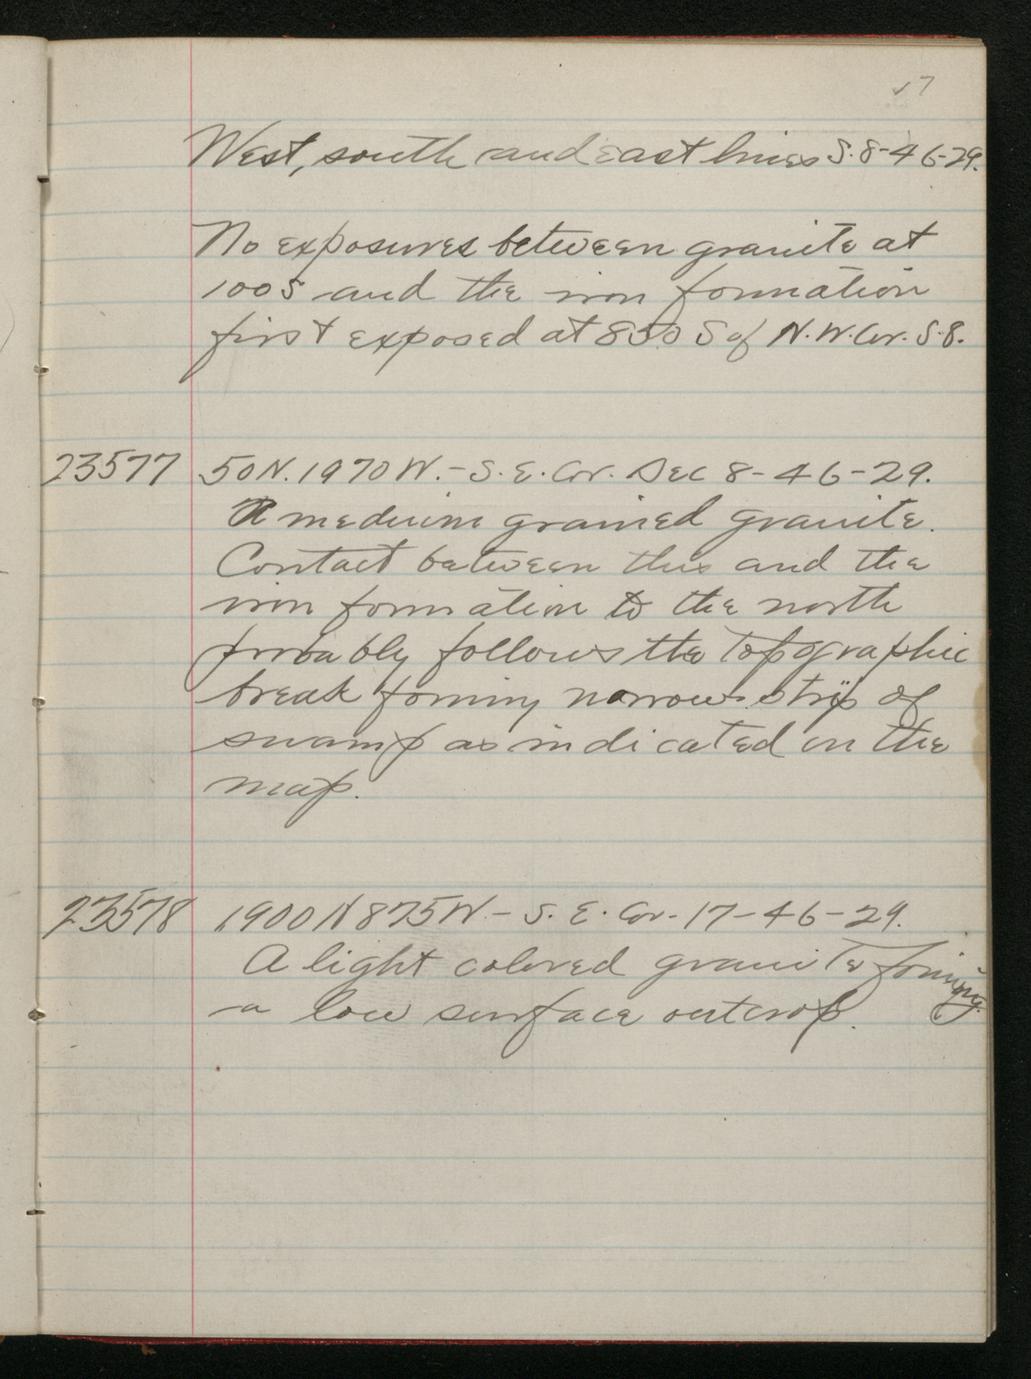 17
West, south and east lines S. 8-46-29.
No exposures between granite at
100 S and the iron formation
first exposed at 850 S of N.W. Cor. S. 8.
23577 50 N. 1970 W. - S. E. Cor. Sec 8-46-29.
A medium grained granite.
Contact between this and the
iron formation to the north
probably follows the topographic
break forming narrow strip of
swamp as indicated on the
map.
23578 1900 N 875 W. - S. E. Cor. 17-46-29.
A light colored granite forming
a low surface outcrop.